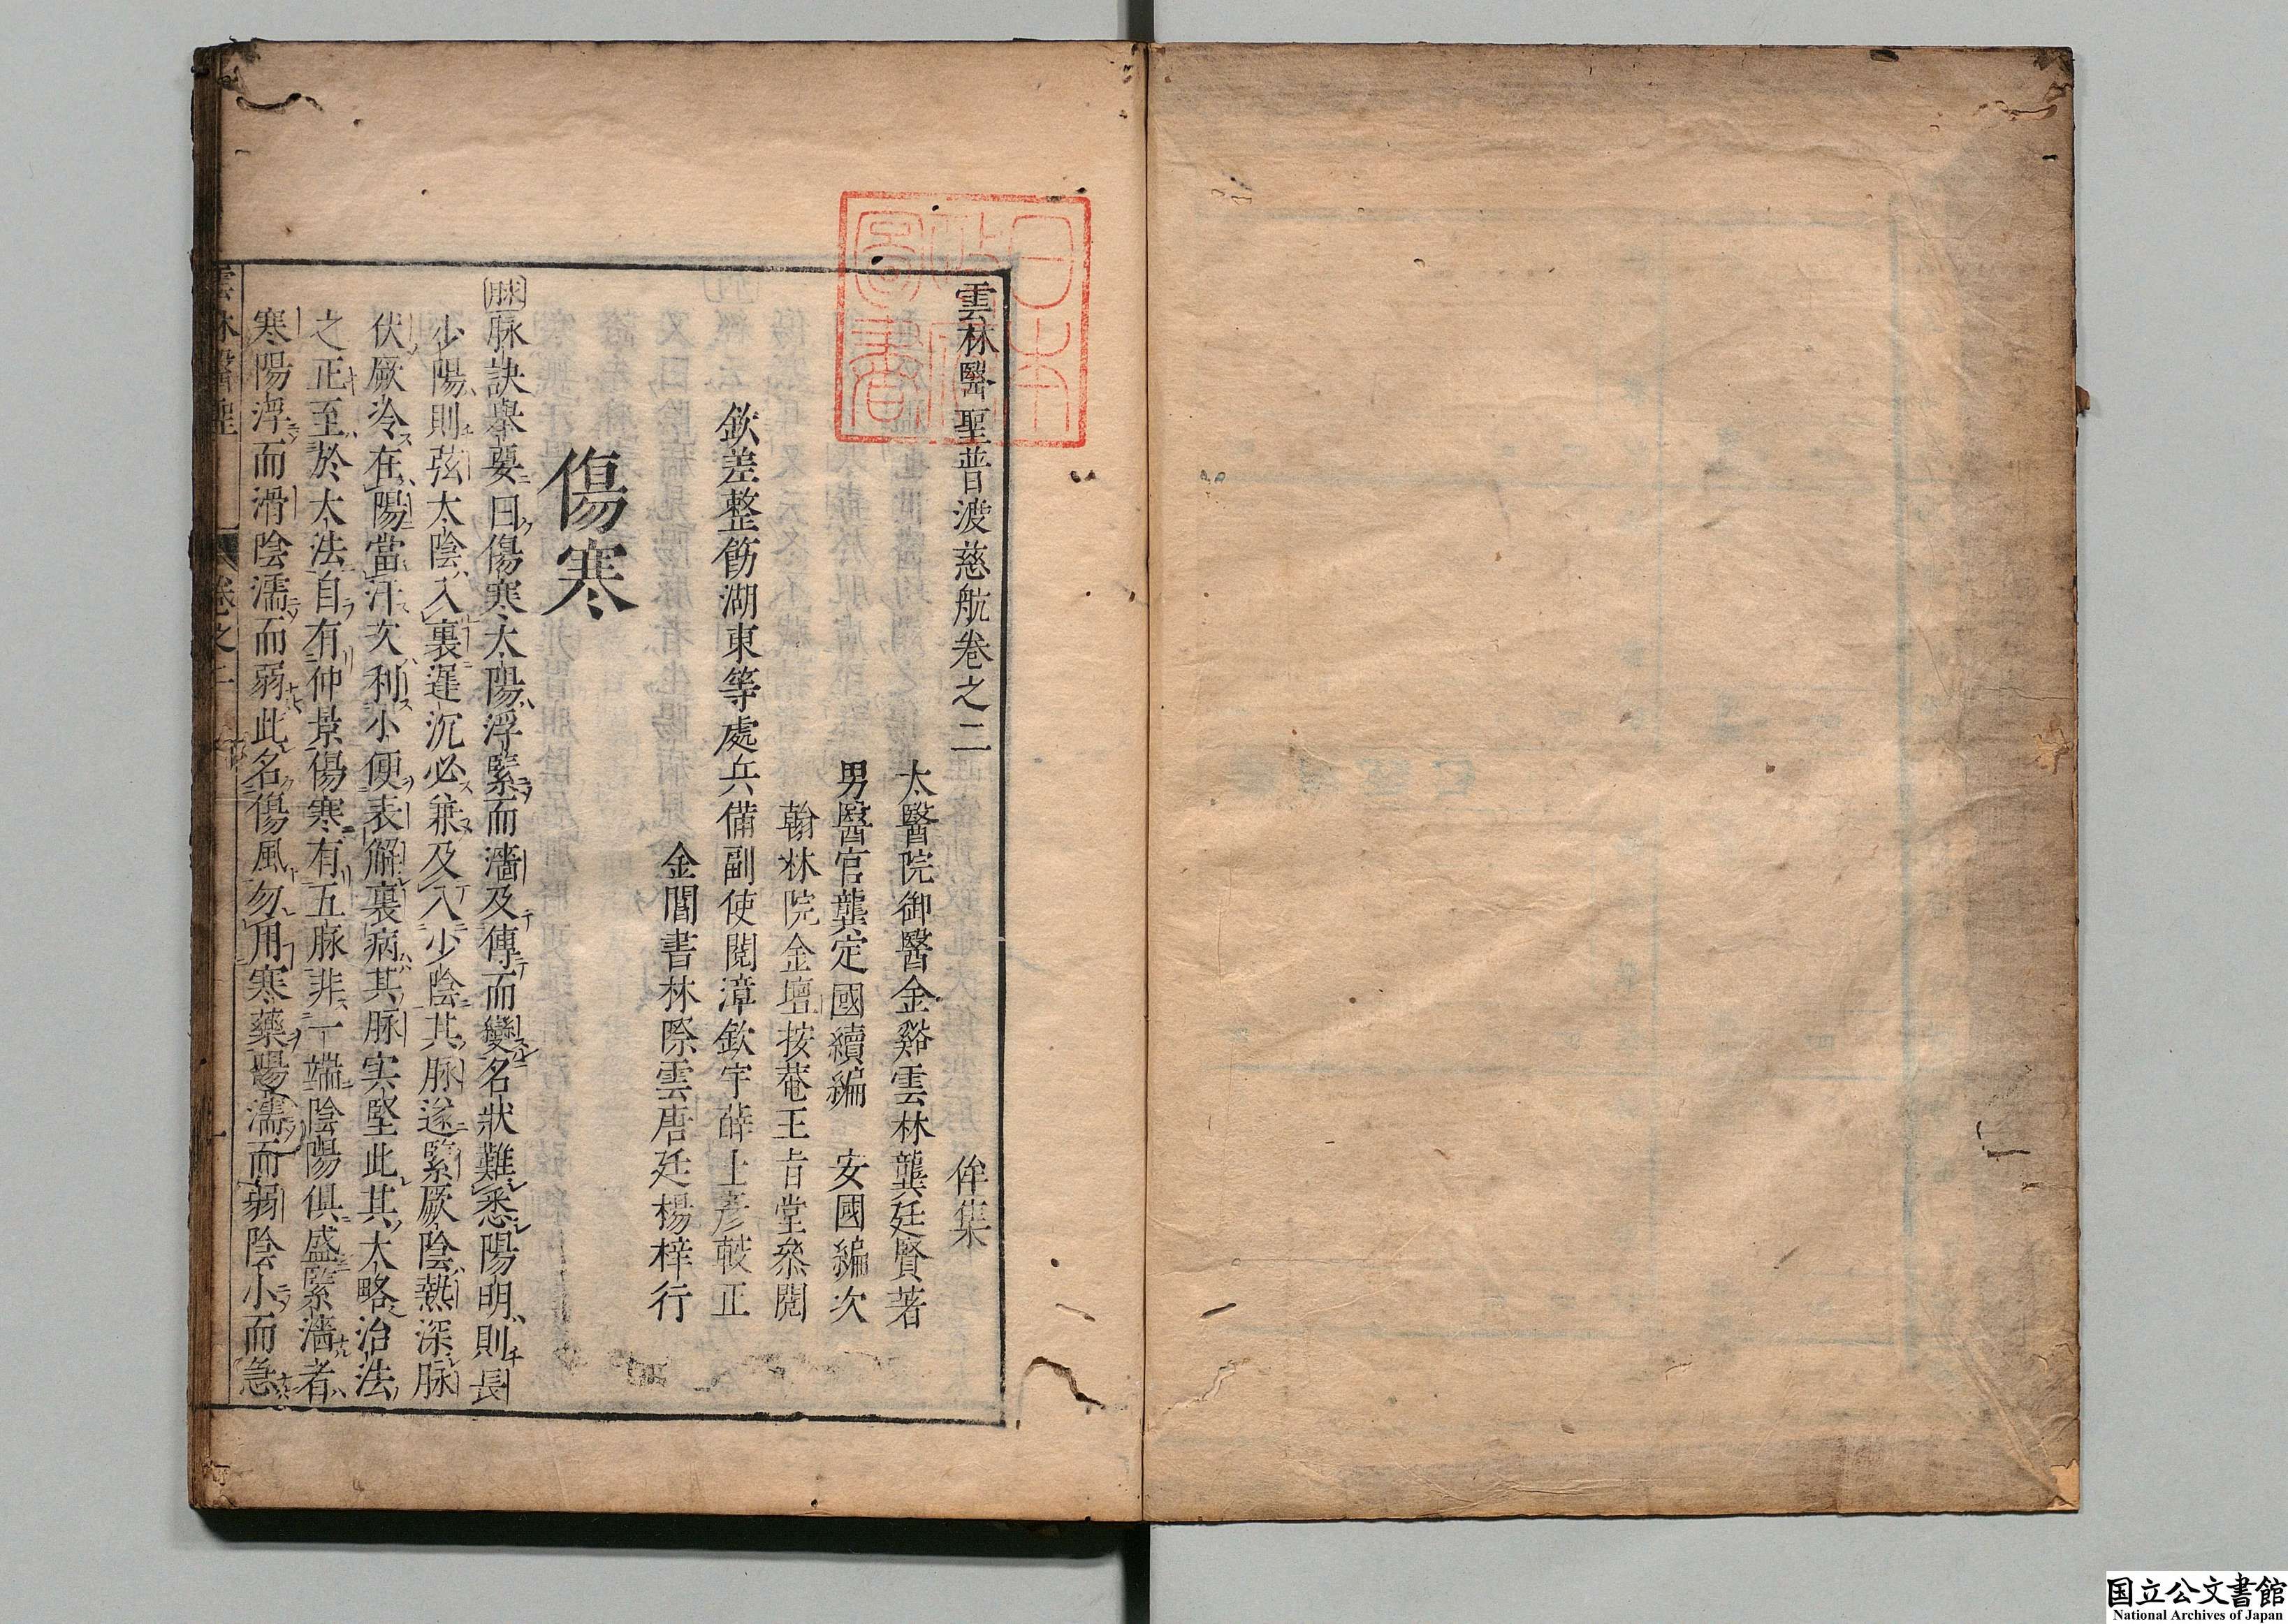 雲林醫聖普渡慈航卷之二 侔集
太醫院御醫金谿雲林龔廷賢著
男醫官龔定國續編 安國編次
翰林院金壇按菴王肯堂叅閱
欽差整飭湖東等處兵備副使閩漳欽宇薛士彥較正
金閶書林際雲唐廷楊梓行
傷寒
脉脉訣舉要曰傷寒太陽浮緊而濇及傳而變名狀難悉陽明則長
少陽則弦太陰入裏遲沉必兼及入少陰其脉遂緊厥陰熱深脉
伏厥冷在陽當汗次利小便表解裏病其脉实堅此其大略治法
之正至於大法自有仲景傷寒有五脉非一端陰陽俱盛緊濇者
寒陽浮而滑陰濡而弱此名傷風勿用寒藥陽濡而弱陰小而急
雲林醫聖 卷之二 一
日本政府圖書
国立公文書館
National Archives of Japan